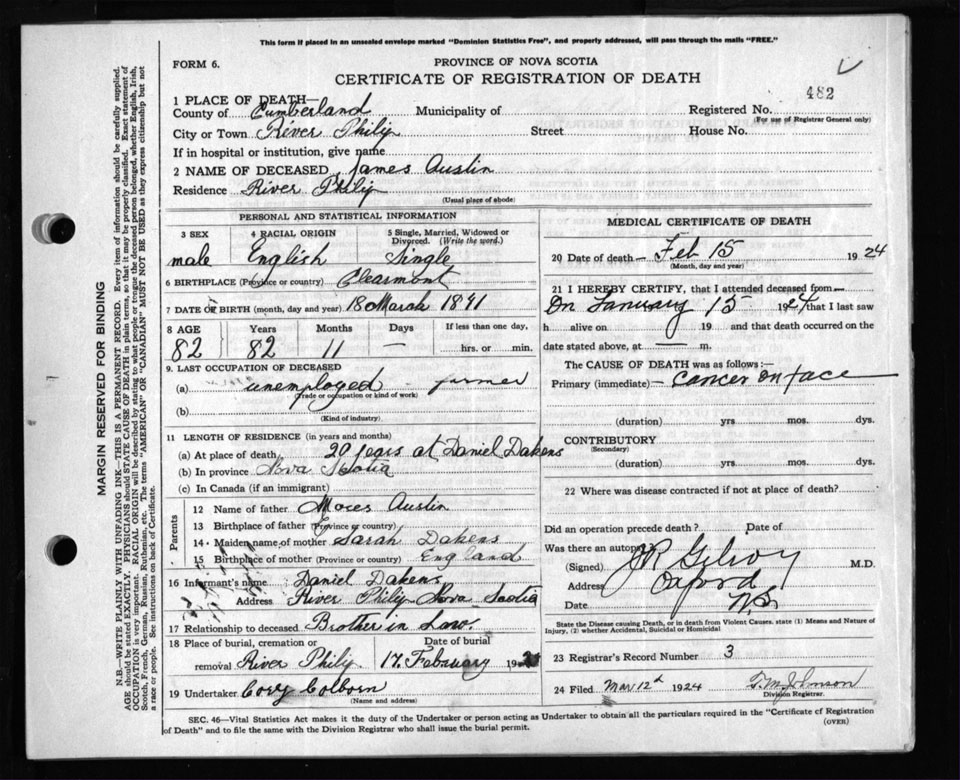 This form if placed in an unsealed envelope marked "Dominion Statistics Free", and properly addressed, will pass through the mails "FREE."
FORM 6.
PROVINCE OF NOVA SCOTIA
CERTIFICATE OF REGISTRATION OF DEATH
482
1 PLACE OF DEATH—
County of Cumberland Municipality of Registered No.
(For use of Registrar General only)
City or Town River Philip Street House No.
If in hospital or institution, give name
2 NAME OF DECEASED James Austin
Residence River Philip
(Usual place of abode)
PERSONAL AND STATISTICAL INFORMATION
3 SEX 4 RACIAL ORIGIN 5 Single, Married, Widowed or Divorced. (Write the word.)
male English Single
6 BIRTHPLACE (Province or country) Clearmont
7 DATE OF BIRTH (month, day and year) 18 March 1841
8 AGE Years Months Days If less than one day,
82 82 11 — hrs. or min.
9. LAST OCCUPATION OF DECEASED
(a) unemployed - farmer
(Trade or occupation or kind of work)
(b)
(Kind of industry)
11 LENGTH OF RESIDENCE (in years and months)
(a) At place of death 20 years at Daniel Dakens
(b) In province Nova Scotia
(c) In Canada (if an immigrant)
Parents
12 Name of father Moces Austin
13 Birthplace of father (Province or country)
14 Maiden name of mother Sarah Dakens
15 Birthplace of mother (Province or country) England
16 Informant's name Daniel Dakens
Address River Philip Nova Scotia
17 Relationship to deceased Brother in Law.
18 Place of burial, cremation or removal River Philip Date of burial 17 Febuary 19
19 Undertaker Cory Colborn
(Name and address)
MEDICAL CERTIFICATE OF DEATH
20 Date of death — Feb 15 1924
(Month, day and year)
21 I HEREBY CERTIFY, that I attended deceased from
On January 15 1924 that I last saw
h alive on 19 and that death occurred on the
date stated above, at — m.
The CAUSE OF DEATH was as follows:—
Primary (immediate) — Cancer on face
(duration) yrs. mos. dys.
CONTRIBUTORY
(Secondary)
(duration) yrs. mos. dys.
22 Where was disease contracted if not at place of death?
Did an operation precede death? Date of
Was there an autopsy
(Signed) M.D.
Address Oxford
Date N.S.
State the Disease causing Death, or in death from Violent Causes, state (1) Means and Nature of
Injury, (2) whether Accidental, Suicidal or Homicidal
23 Registrar's Record Number 3
24 Filed Mar 12th 1924 T. M. Johnson
Division Registrar.
SEC. 46—Vital Statistics Act makes it the duty of the Undertaker or person acting as Undertaker to obtain all the particulars required in the "Certificate of Registration
of Death" and to file the same with the Division Registrar who shall issue the burial permit.
(OVER)
MARGIN RESERVED FOR BINDING
N.B.—WRITE PLAINLY WITH UNFADING INK—THIS IS A PERMANENT RECORD. Every item of information should be carefully supplied.
AGE should be stated EXACTLY. PHYSICIANS should STATE CAUSE OF DEATH in plain terms, so that it may be properly classified. Exact statement of
OCCUPATION is very important. RACIAL ORIGIN will be described by stating to what people or tongue the deceased person belonged, whether English, Irish,
Scotch, French, German, Russian, Ruthenian, etc. The terms "AMERICAN" OR "CANADIAN" MUST NOT BE USED as they express citizenship but not
a race or people. See instructions on back of Certificate.